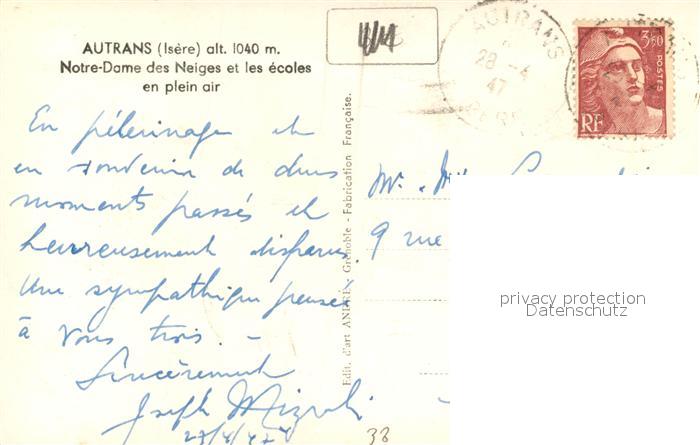 AUTRANS (Isère) alt. 1040 m.
Notre-Dame des Neiges et les écoles
en plein air
AUTRANS
28 -4
47
ISÈRE
3F60
POSTES
RF
En pélerinage et
en souvenir de durs
moments passés et
heureusement disparus
Une sympathique pensée
à vous trois. -
Sincèrement
Joseph Mizrahi
27/4/47
38
Edit. d'art ANDRY, Grenoble - Fabrication Française.
Mr.
9 rue
privacy protection
Datenschutz